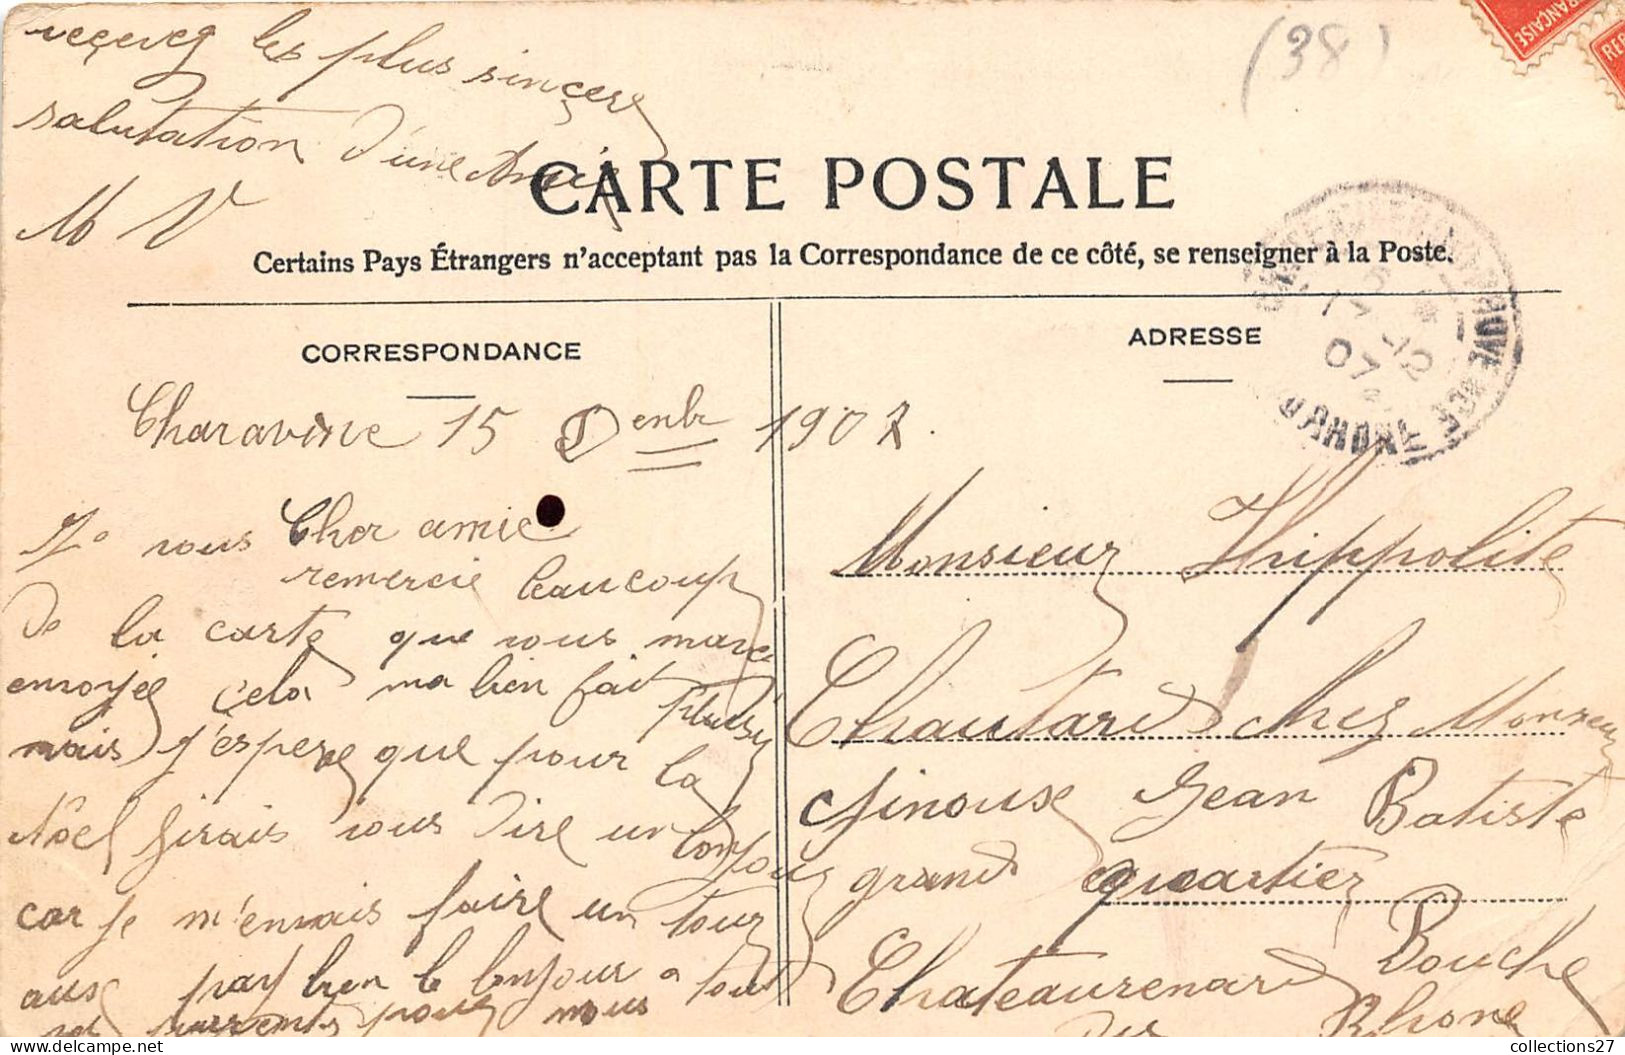 reçeveg les plus sinçere
salutation d'une Amie
M V
(38)
FRANÇAISE
REP
CARTE POSTALE
Certains Pays Étrangers n'acceptant pas la Correspondance de ce côté, se renseigner à la Poste.
CORRESPONDANCE
Charavine 15 Denbr 1907.
Cher amie
Je vous remercie beaucoup
de la carte que vous mavei
envoyée cela ma bien fait plusir
mais j'espere que pour la
Nôel j'irais vous dire un bonjour
car je m'envais faire un tour
aus pay bien le bonjour a tout
parents pour nous
ADRESSE
07
RHONE
Monsieur Hippolite
Chautard chez Monsieur
Ginoux Jean Batiste
grand quartier
Chateaurenard Bouche
du Rhone
collections27